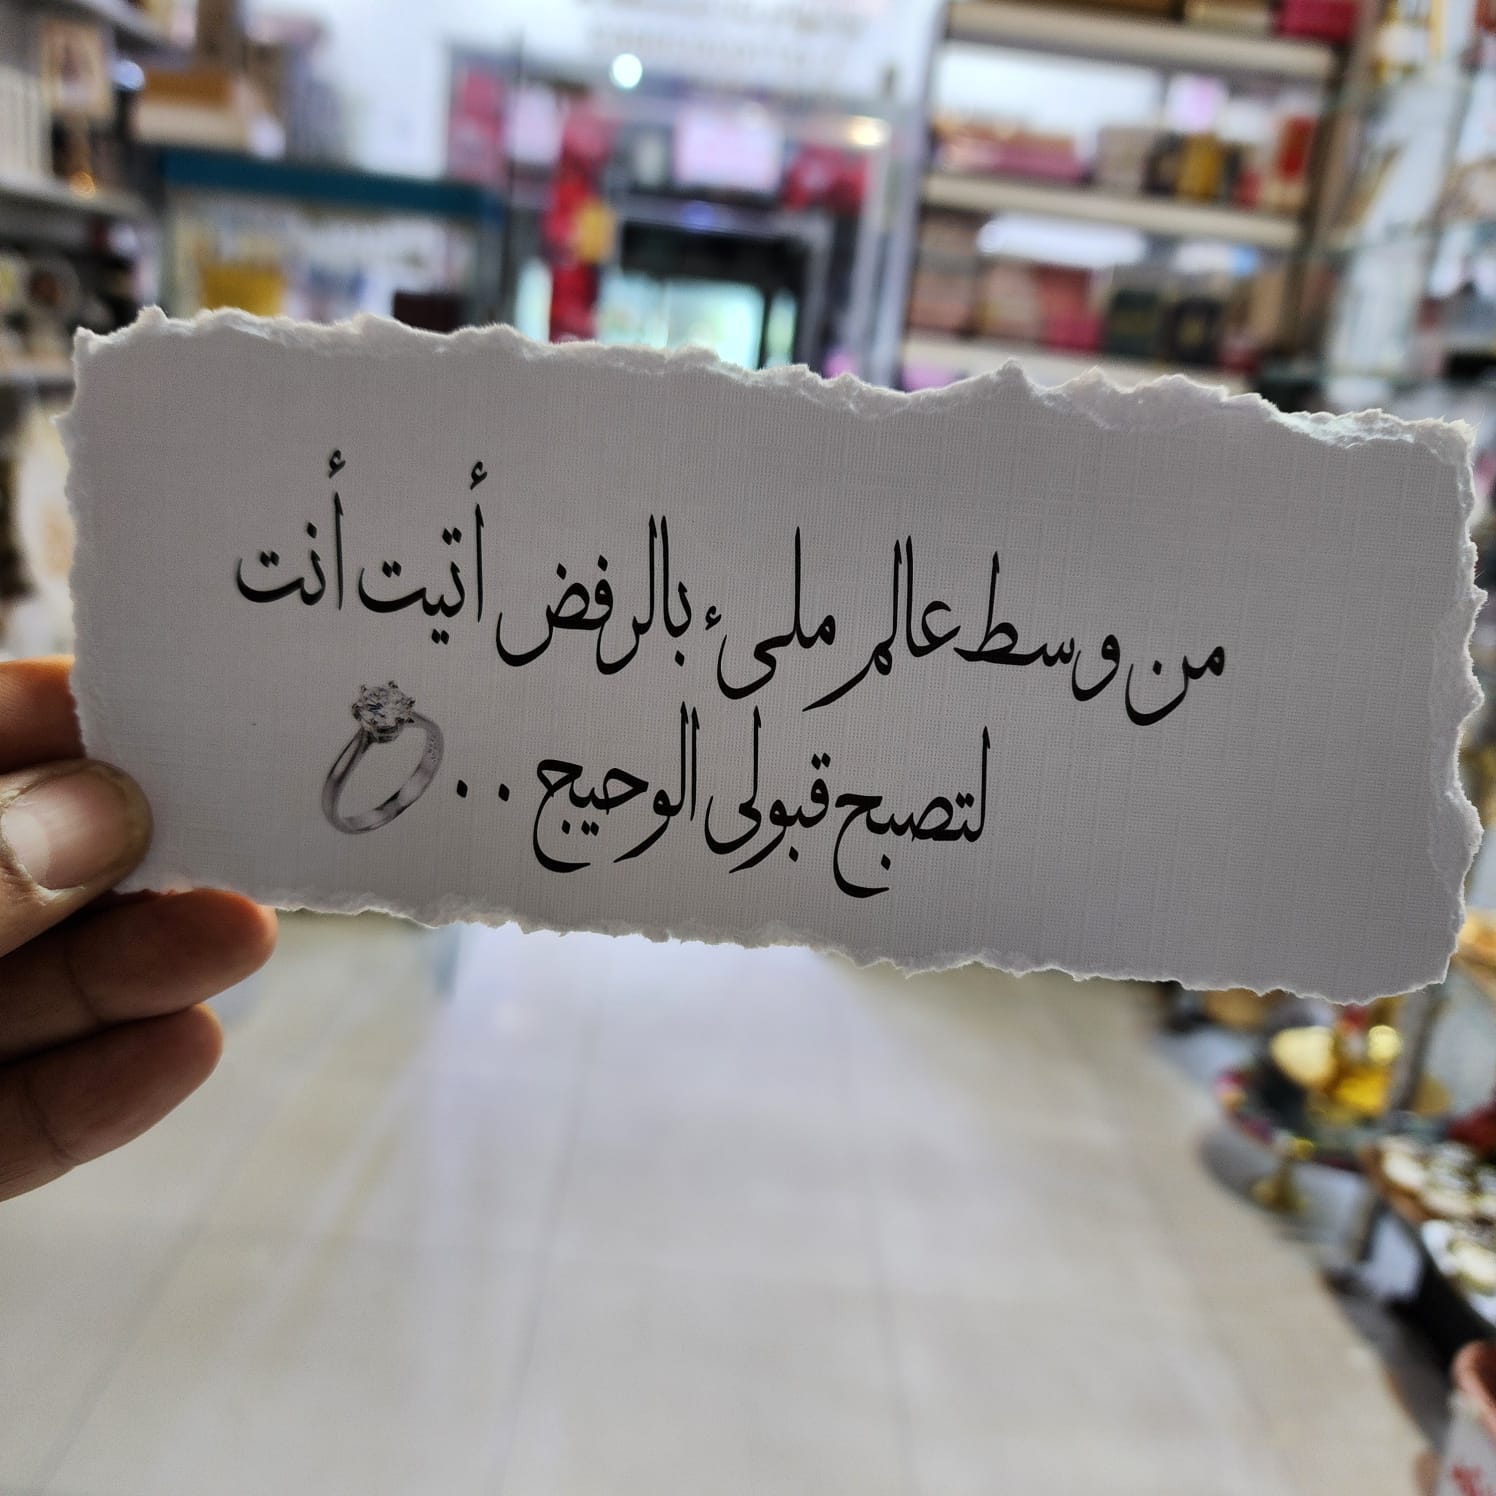 من وسط عالم مليء بالرفض أتيت أنت
لتصبح قبولي الوحيج . .